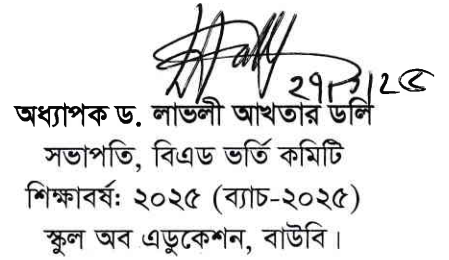 অধ্যাপক ড. লাভলী আখতার ডলি
সভাপতি, বিএড ভর্তি কমিটি
শিক্ষাবর্ষঃ ২০২৫ (ব্যাচ-২০২৫)
স্কুল অব এডুকেশন, বাউবি।